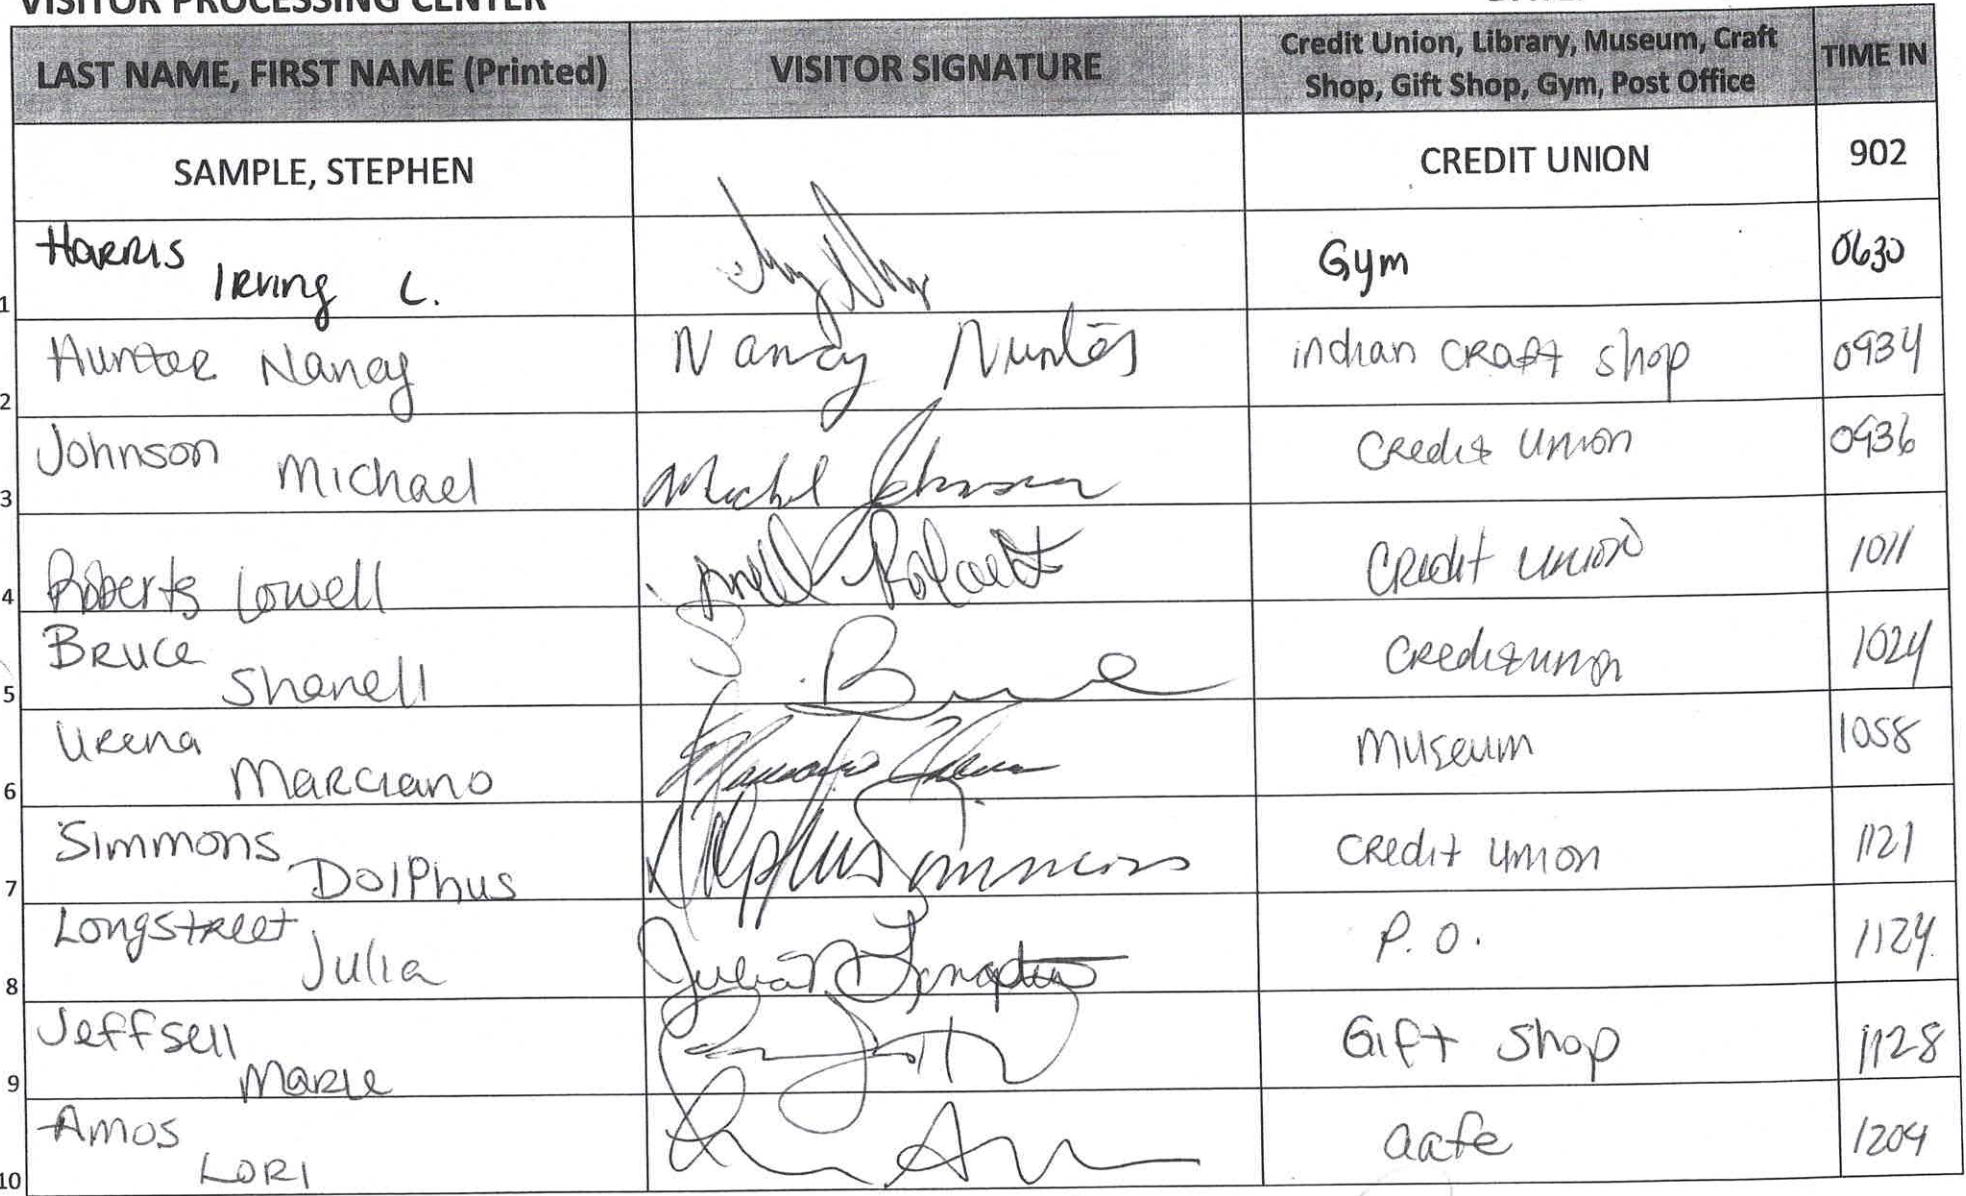 VISITOR PROCESSING CENTER
LAST NAME, FIRST NAME (Printed) VISITOR SIGNATURE Credit Union, Library, Museum, Craft Shop, Gift Shop, Gym, Post Office TIME IN
SAMPLE, STEPHEN CREDIT UNION 902
1 Harris Irving L. Gym 0630
2 Hunter Nancy Nancy indian craft shop 0934
3 Johnson Michael Michael Johnson Credit Union 0936
4 Roberts Lowell Lowell Credit Union 1011
5 Bruce Shanell Bruce Credit union 1024
6 Urena Marciano Marciano Urena Museum 1058
7 Simmons DolPhus Dolphus Simmons Credit Union 1121
8 Longstreet Julia Julia P.O. 1124
9 Jeffsell Marie Gift Shop 1128
10 Amos LORI cafe 1204